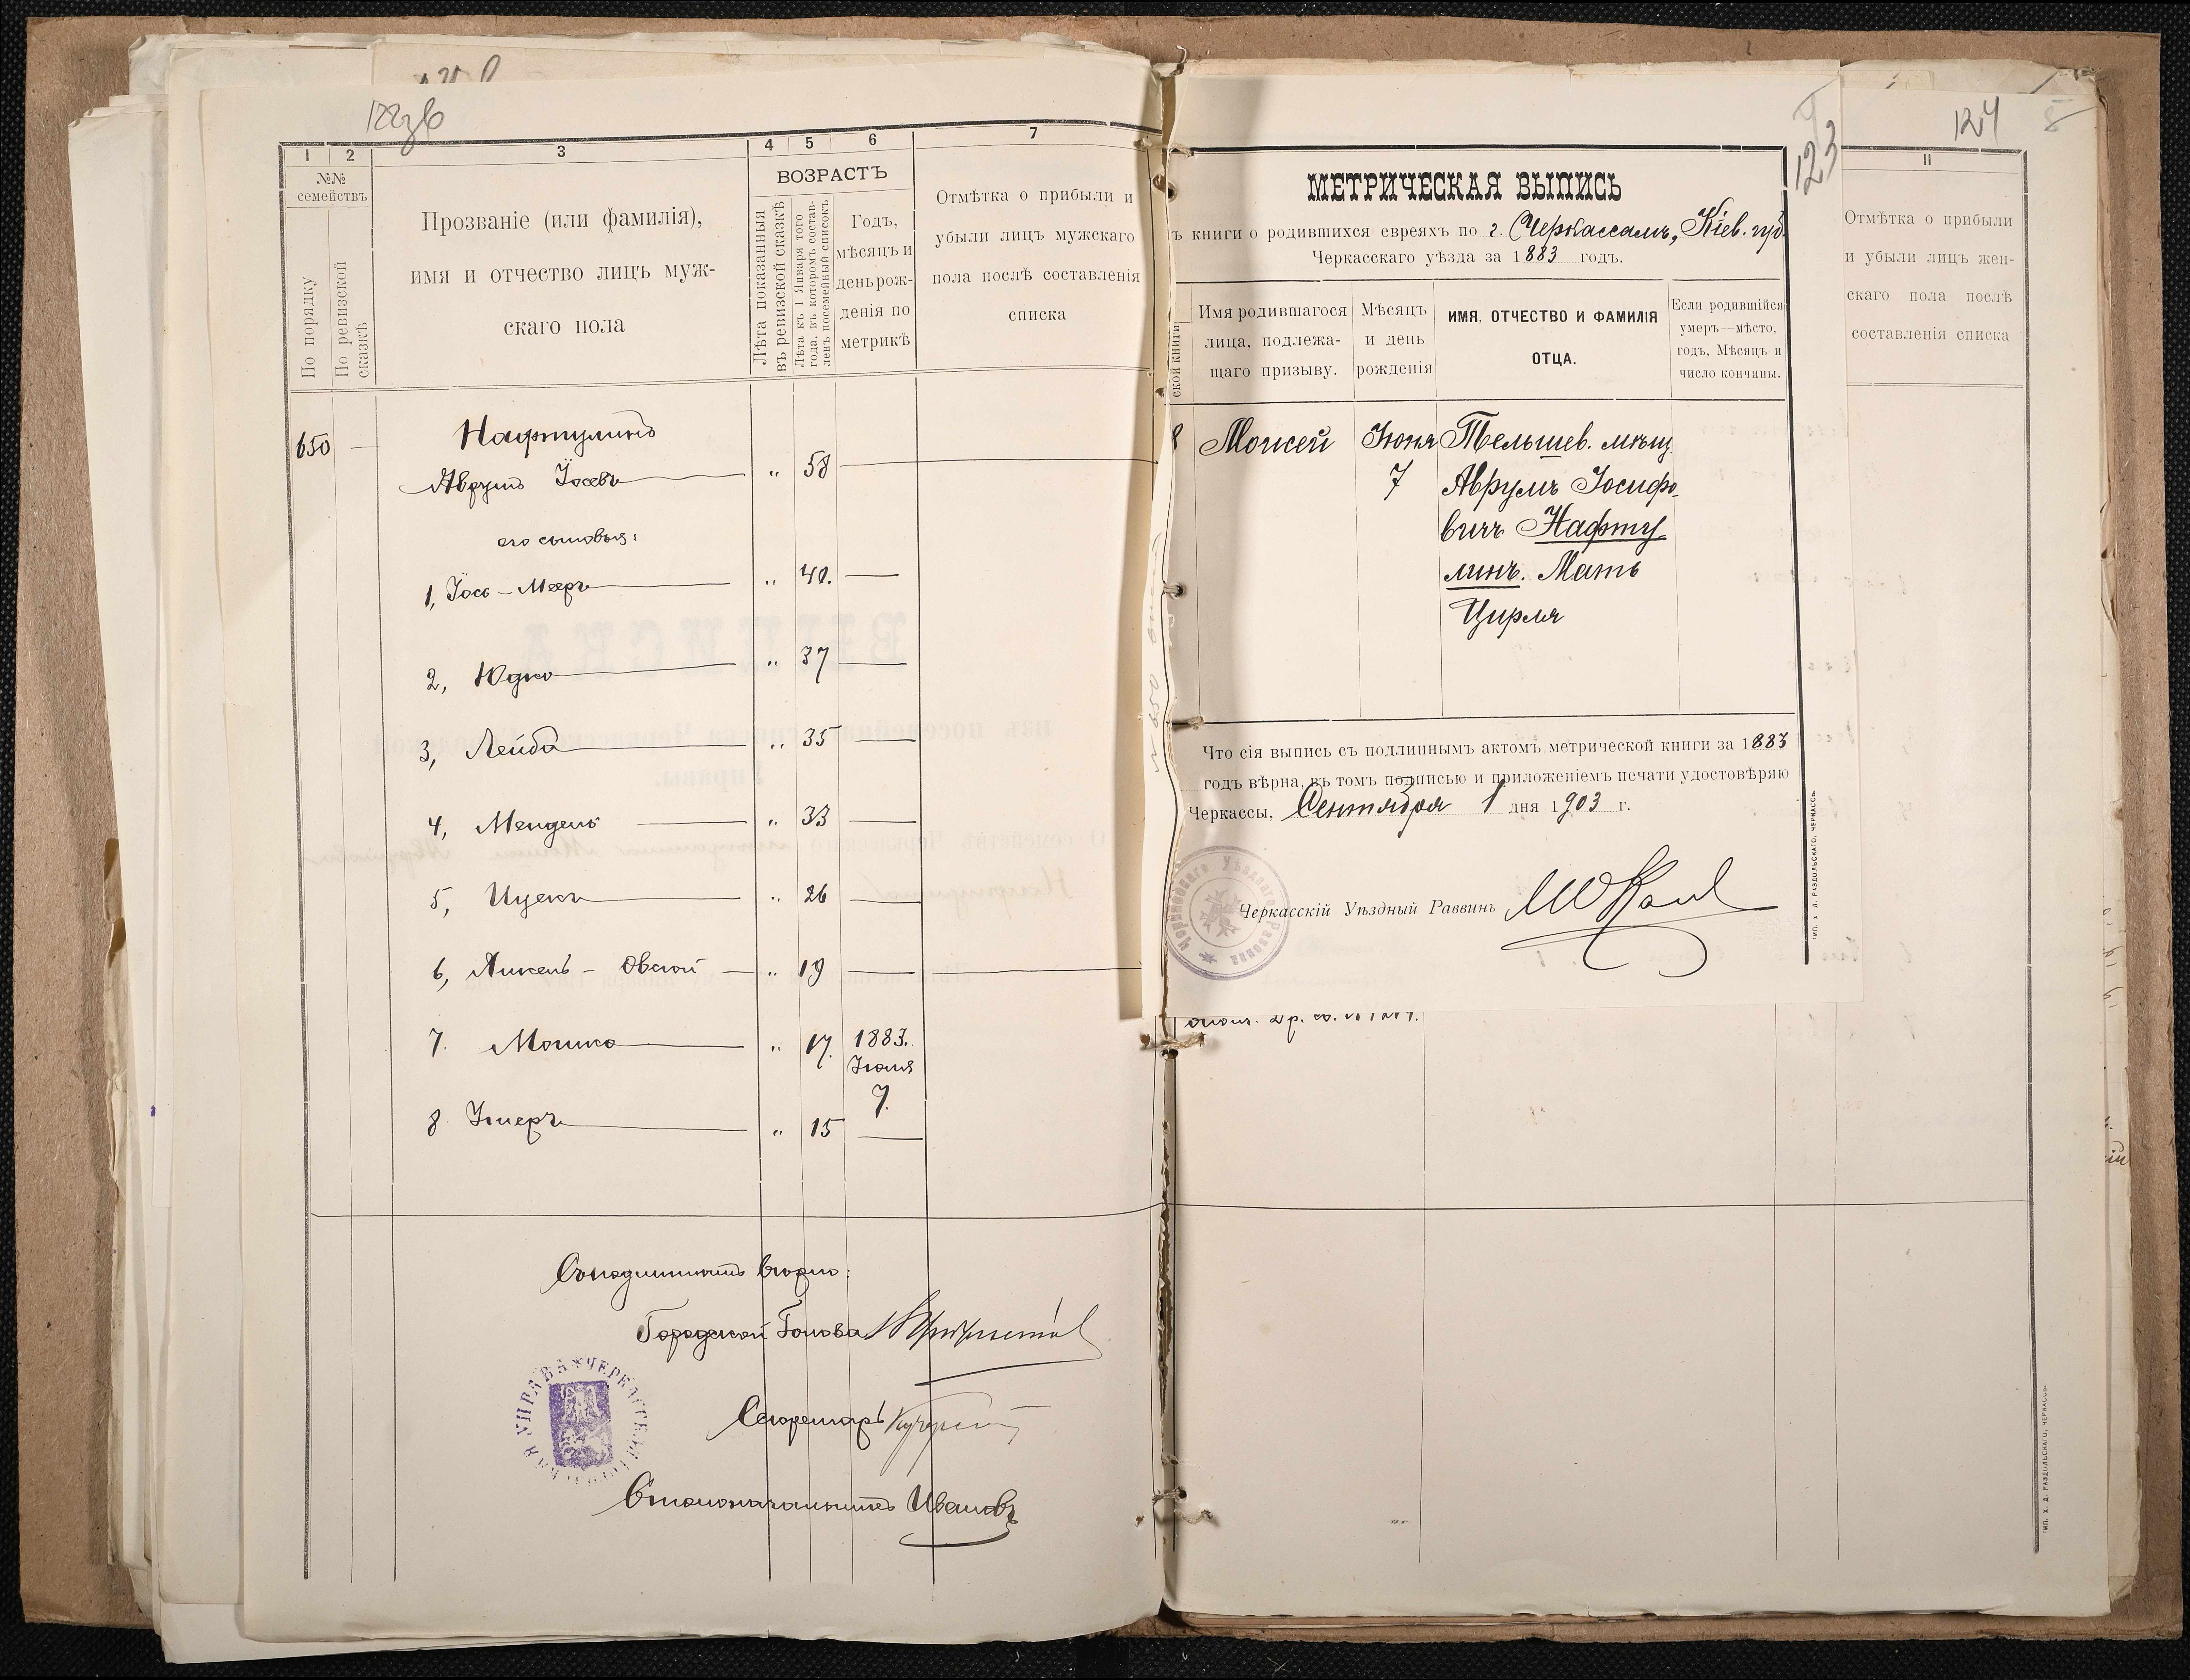 122об
1
2
3
4
5
6
7
№№
семействъ
По порядку
По ревизской
сказкѣ
Прозваніе (или фамилія),
имя и отчество лицъ муж-
скаго пола
ВОЗРАСТЪ
Лѣта показанныя
въ ревизской сказкѣ
Лѣта къ 1 Января того
года, въ которомъ состав-
ленъ посемейный списокъ
Годъ,
мѣсяцъ и
день рож-
денія по
метрикѣ
Отмѣтка о прибыли и
убыли лицъ мужскаго
пола послѣ составленія
списка
650 —
Нафтулинъ
Аврумъ Іосевъ „ 58
его сыновья:
1, Іось-Мееръ „ 40. —
2, Юдко „ 37 —
3, Лейба „ 35 —
4, Мендель — „ 33 —
5, Ицекъ „ 26 —
6, Анкель - Овсей — „ 19 —
7. Мошко „ 17. 1883.
Іюня
7.
8 Умеръ „ 15 —
Съ подлиннымъ вѣрно:
Городской Голова
Секретарь
Столоначальникъ Ивановъ
УПРАВА * ЧЕРКАССКАЯ
123
МЕТРИЧЕСКАЯ ВЫПИСЬ
ъ книги о родившихся евреяхъ по г. Черкассамъ, Кіев. губ.
Черкасскаго уѣзда за 1883 годъ.
ской книги
Имя родившагося
лица, подлежа-
щаго призыву.
Мѣсяцъ
и день
рожденія
ИМЯ, ОТЧЕСТВО И ФАМИЛІЯ
ОТЦА.
Если родившійся
умеръ—мѣсто,
годъ, Мѣсяцъ и
число кончины.
8 Моисей Іюня Тельшев. мѣщ.
7 Аврумъ Іосифо-
вичъ Нафту-
линъ. Мать
Цирля
Что сія выпись съ подлиннымъ актомъ метрической книги за 1883
годъ вѣрна, въ томъ подписью и приложеніемъ печати удостовѣряю
Черкассы, Сентября 1 дня 1903 г.
Черкасскій Уѣздный Раввинъ
Черкасскаго Уѣзднаго Раввина
Тип. Х. Д. РАЗДОЛЬСКАГО, ЧЕРКАССЫ.
124
11
Отмѣтка о прибыли
и убыли лицъ жен-
скаго пола послѣ
составленія списка
Тип. Х. Д. РАЗДОЛЬСКАГО, ЧЕРКАССЫ.